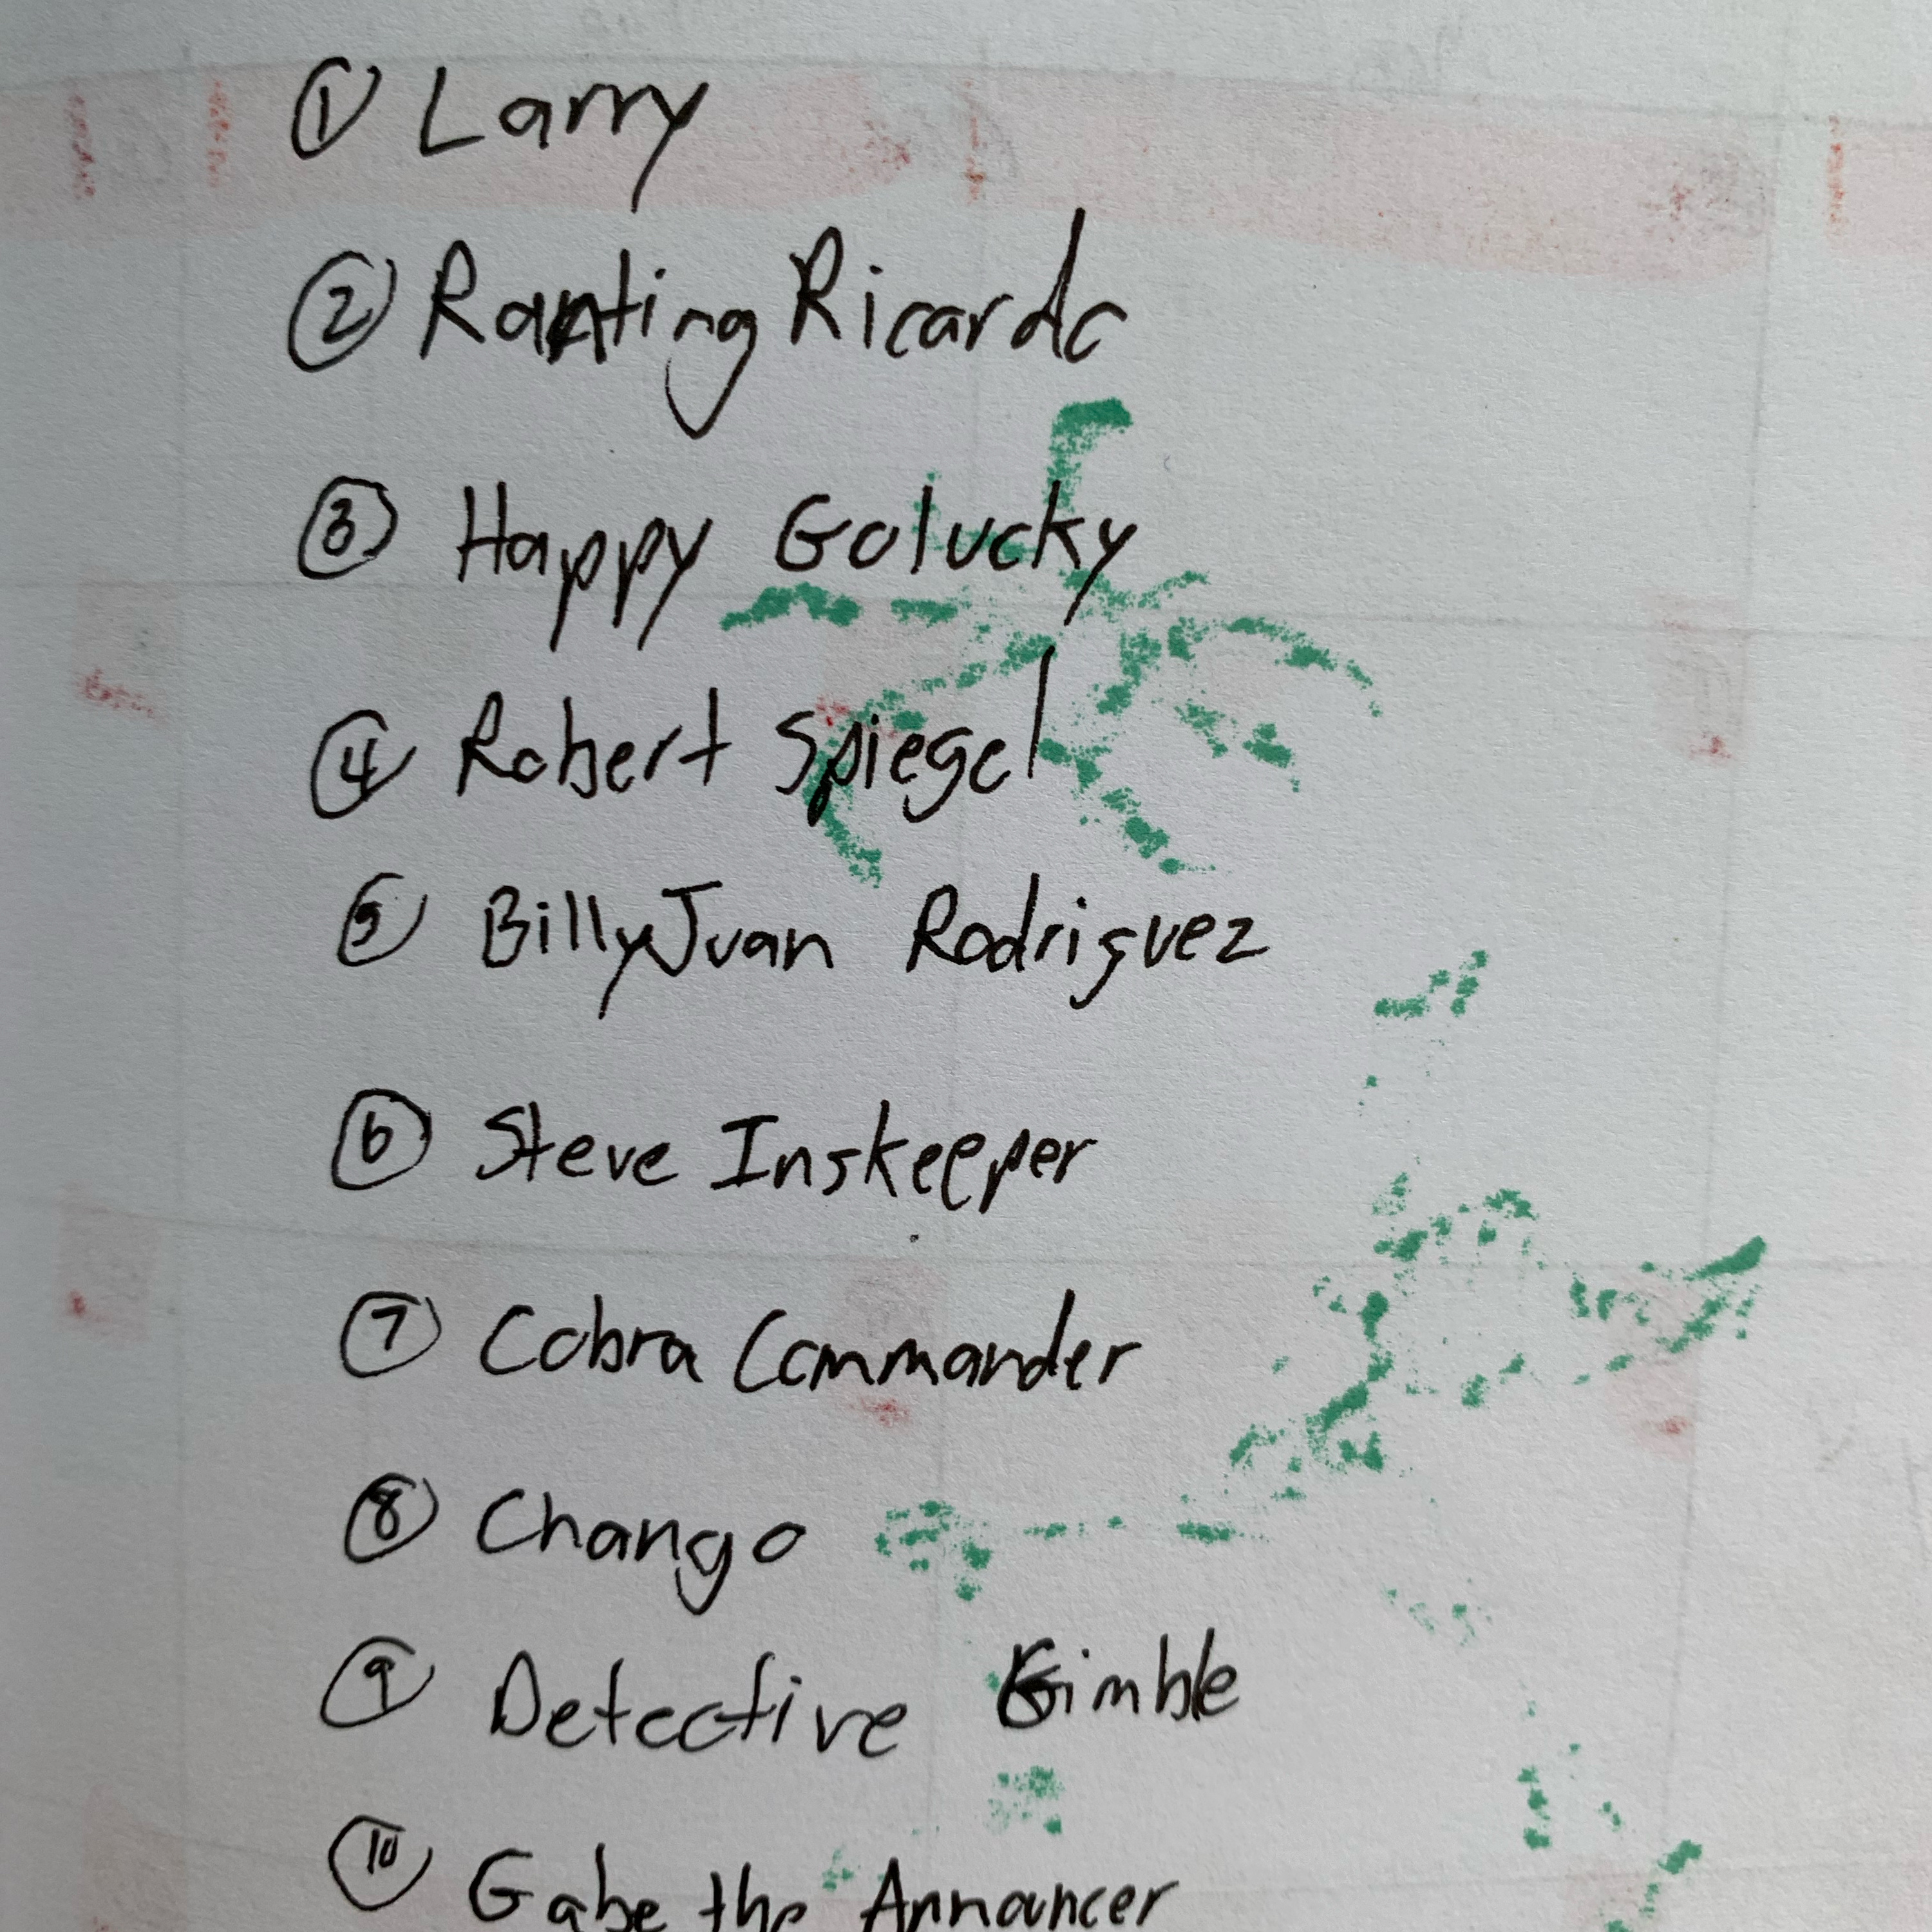 ① Larry
② Ranting Ricardo
③ Happy Golucky
④ Robert Spiegel
⑤ BillyJuan Rodriguez
⑥ Steve Inskeeper
⑦ Cobra Commander
⑧ Chango
⑨ Detective Gimble
⑩ Gabe the Annancer